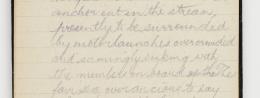 anchorset in the stream,
presently to be surrounded
by motorlaunches overcrowded
and seemingly sinking with
the number on board as the
fair sex over anxious to say